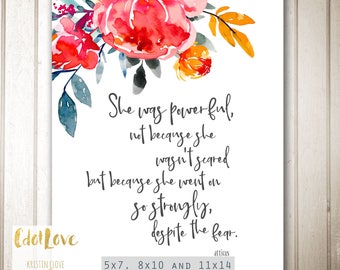 She was powerful,
not because she
wasn't scared
but because she went on
so strongly,
despite the fear.
atticus
EdotLove
KRISTIN GLOVE
5x7, 8x10 AND 11x14